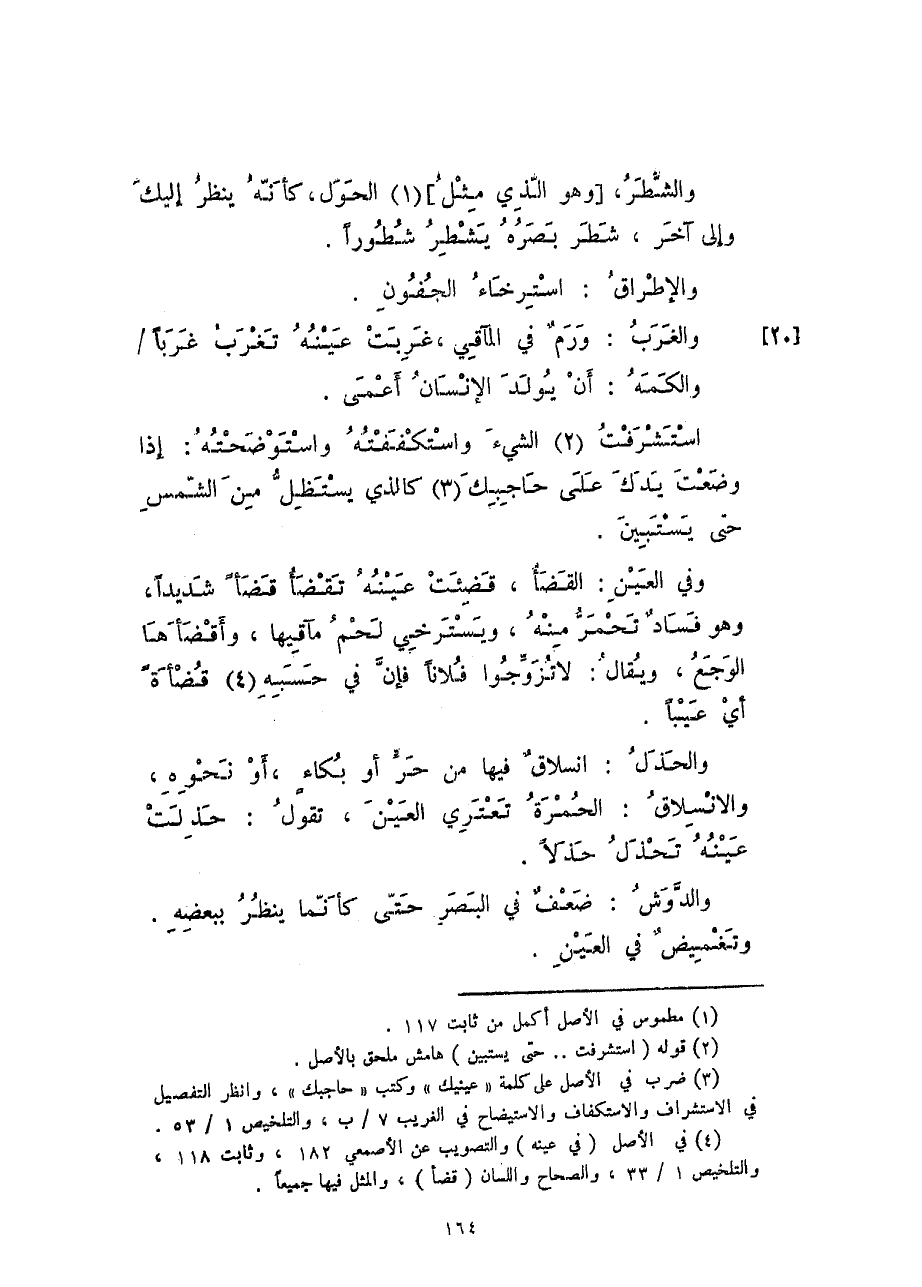 والشَّطَرُ، [وهو الَّذِي مِثْلُ](١) الحَوَل، كأَنَّهُ ينظرُ إليكَ
وإلى آخَرَ ، شَطَرَ بَصَرُهُ يَشْطِرُ شُطُوراً .
والإطْراقُ : اسْتِرخَاءُ الجُفُونِ .
[٢٠] والغَرَبُ : وَرَمٌ في المآقِي ، غَرِبَتْ عَيْنُهُ تَغْرَبُ غَرَبَاً /
والكَمَهُ : أَنْ يُولَدَ الإنْسَانُ أَعْمَى .
اسْتَشْرَفْتُ (٢) الشيءَ واسْتكْفَفْتُهُ واسْتَوْضَحْتُهُ: إذا
وضَعْتَ يَدَكَ عَلَى حَاجِبِكَ (٣) كالذي يسْتَظِلُّ مِنَ الشَّمسِ
حتّى يَسْتَبِينَ .
وفي العَيْنِ : القَضَأُ ، قَضِئَتْ عَيْنُهُ تَقْضَأُ قَضَأً شَدِيداً،
وهو فَسَادٌ تَحْمَرُّ مِنْهُ ، ويَسْتَرخِي لَحْمُ مآقِيها ، وأَقْضَأَهَا
الوَجَعُ ، ويُقالُ : لاتُزَوِّجُوا فُلاناً فإنَّ في حَسَبِهِ (٤) قُضْأَةً
أيْ عَيْباً .
والحَذَلُ : انسلاقٌ فيها من حَرٍّ أو بُكاءٍ ، أَوْ نَحْوِهِ ،
والانْسِلاقُ : الحُمْرَةُ تَعْتَرِي العَيْنَ ، تقولُ : حَذِلَتْ
عَيْنُهُ تَحْذَلُ حَذَلاً .
والدَّوَشُ : ضَعْفٌ في البَصَرِ حَتّى كأَنّما ينظُرُ ببعضِهِ .
وتَغْمِيضٌ في العَيْنِ .
(١) مطموس في الأصل أكمل من ثابت ١١٧ .
(٢) قوله ( استشرفت .. حتى يستبين ) هامش ملحق بالأصل .
(٣) ضرب في الأصل على كلمة « عينيك » وكتب « حاجبك » ، وانظر التفصيل
في الاستشراف والاستكفاف والاستيضاح في الغريب ٧ / ب ، والتلخيص ١ / ٥٣ .
(٤) في الأصل ( في عينه ) والتصويب عن الأصمعي ١٨٢ ، وثابت ١١٨ ،
والتلخيص ١ / ٣٣ ، والصحاح واللسان ( قضأ ) ، والمثل فيها جميعاً .
١٦٤